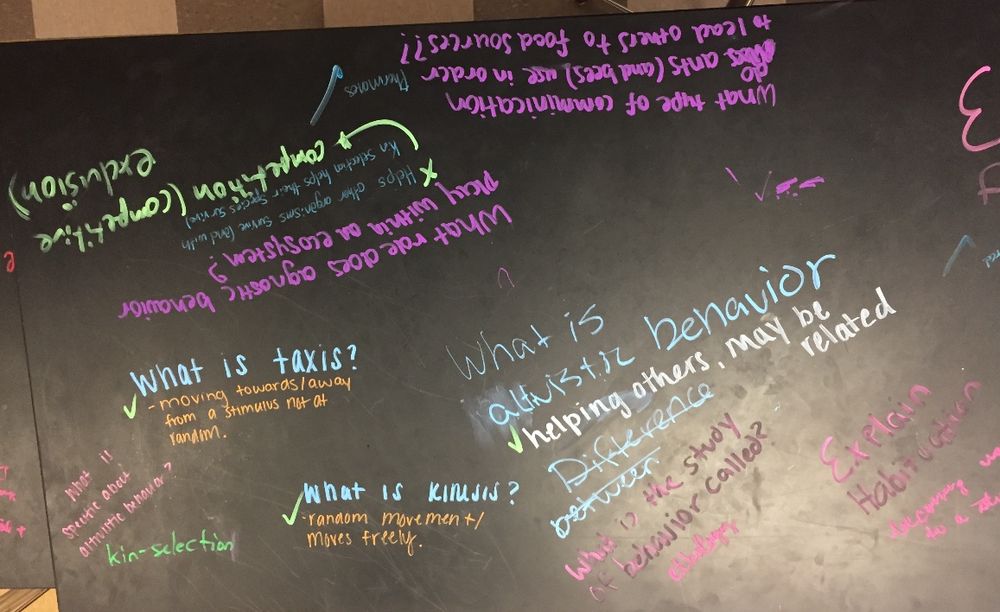 What type of comminication
do ants (and bees) use in order
to lead others to food sources??
What role does agnostic behavior
play within an ecosystem?
Helps other organisms survive (and with
kin selection helps their species survive)
x
competition (competitive
exclusion)
What is taxis?
- moving towards/away
from a stimulus not at
random.
What is
altrvistic behavior
helping others, may be
related
Difference
between
What is kinesis?
- random movement/
moves freely.
What is
specific about
altruistic behavior?
kin-selection
What is the study
of behavior called?
Explain
Habituation
to a